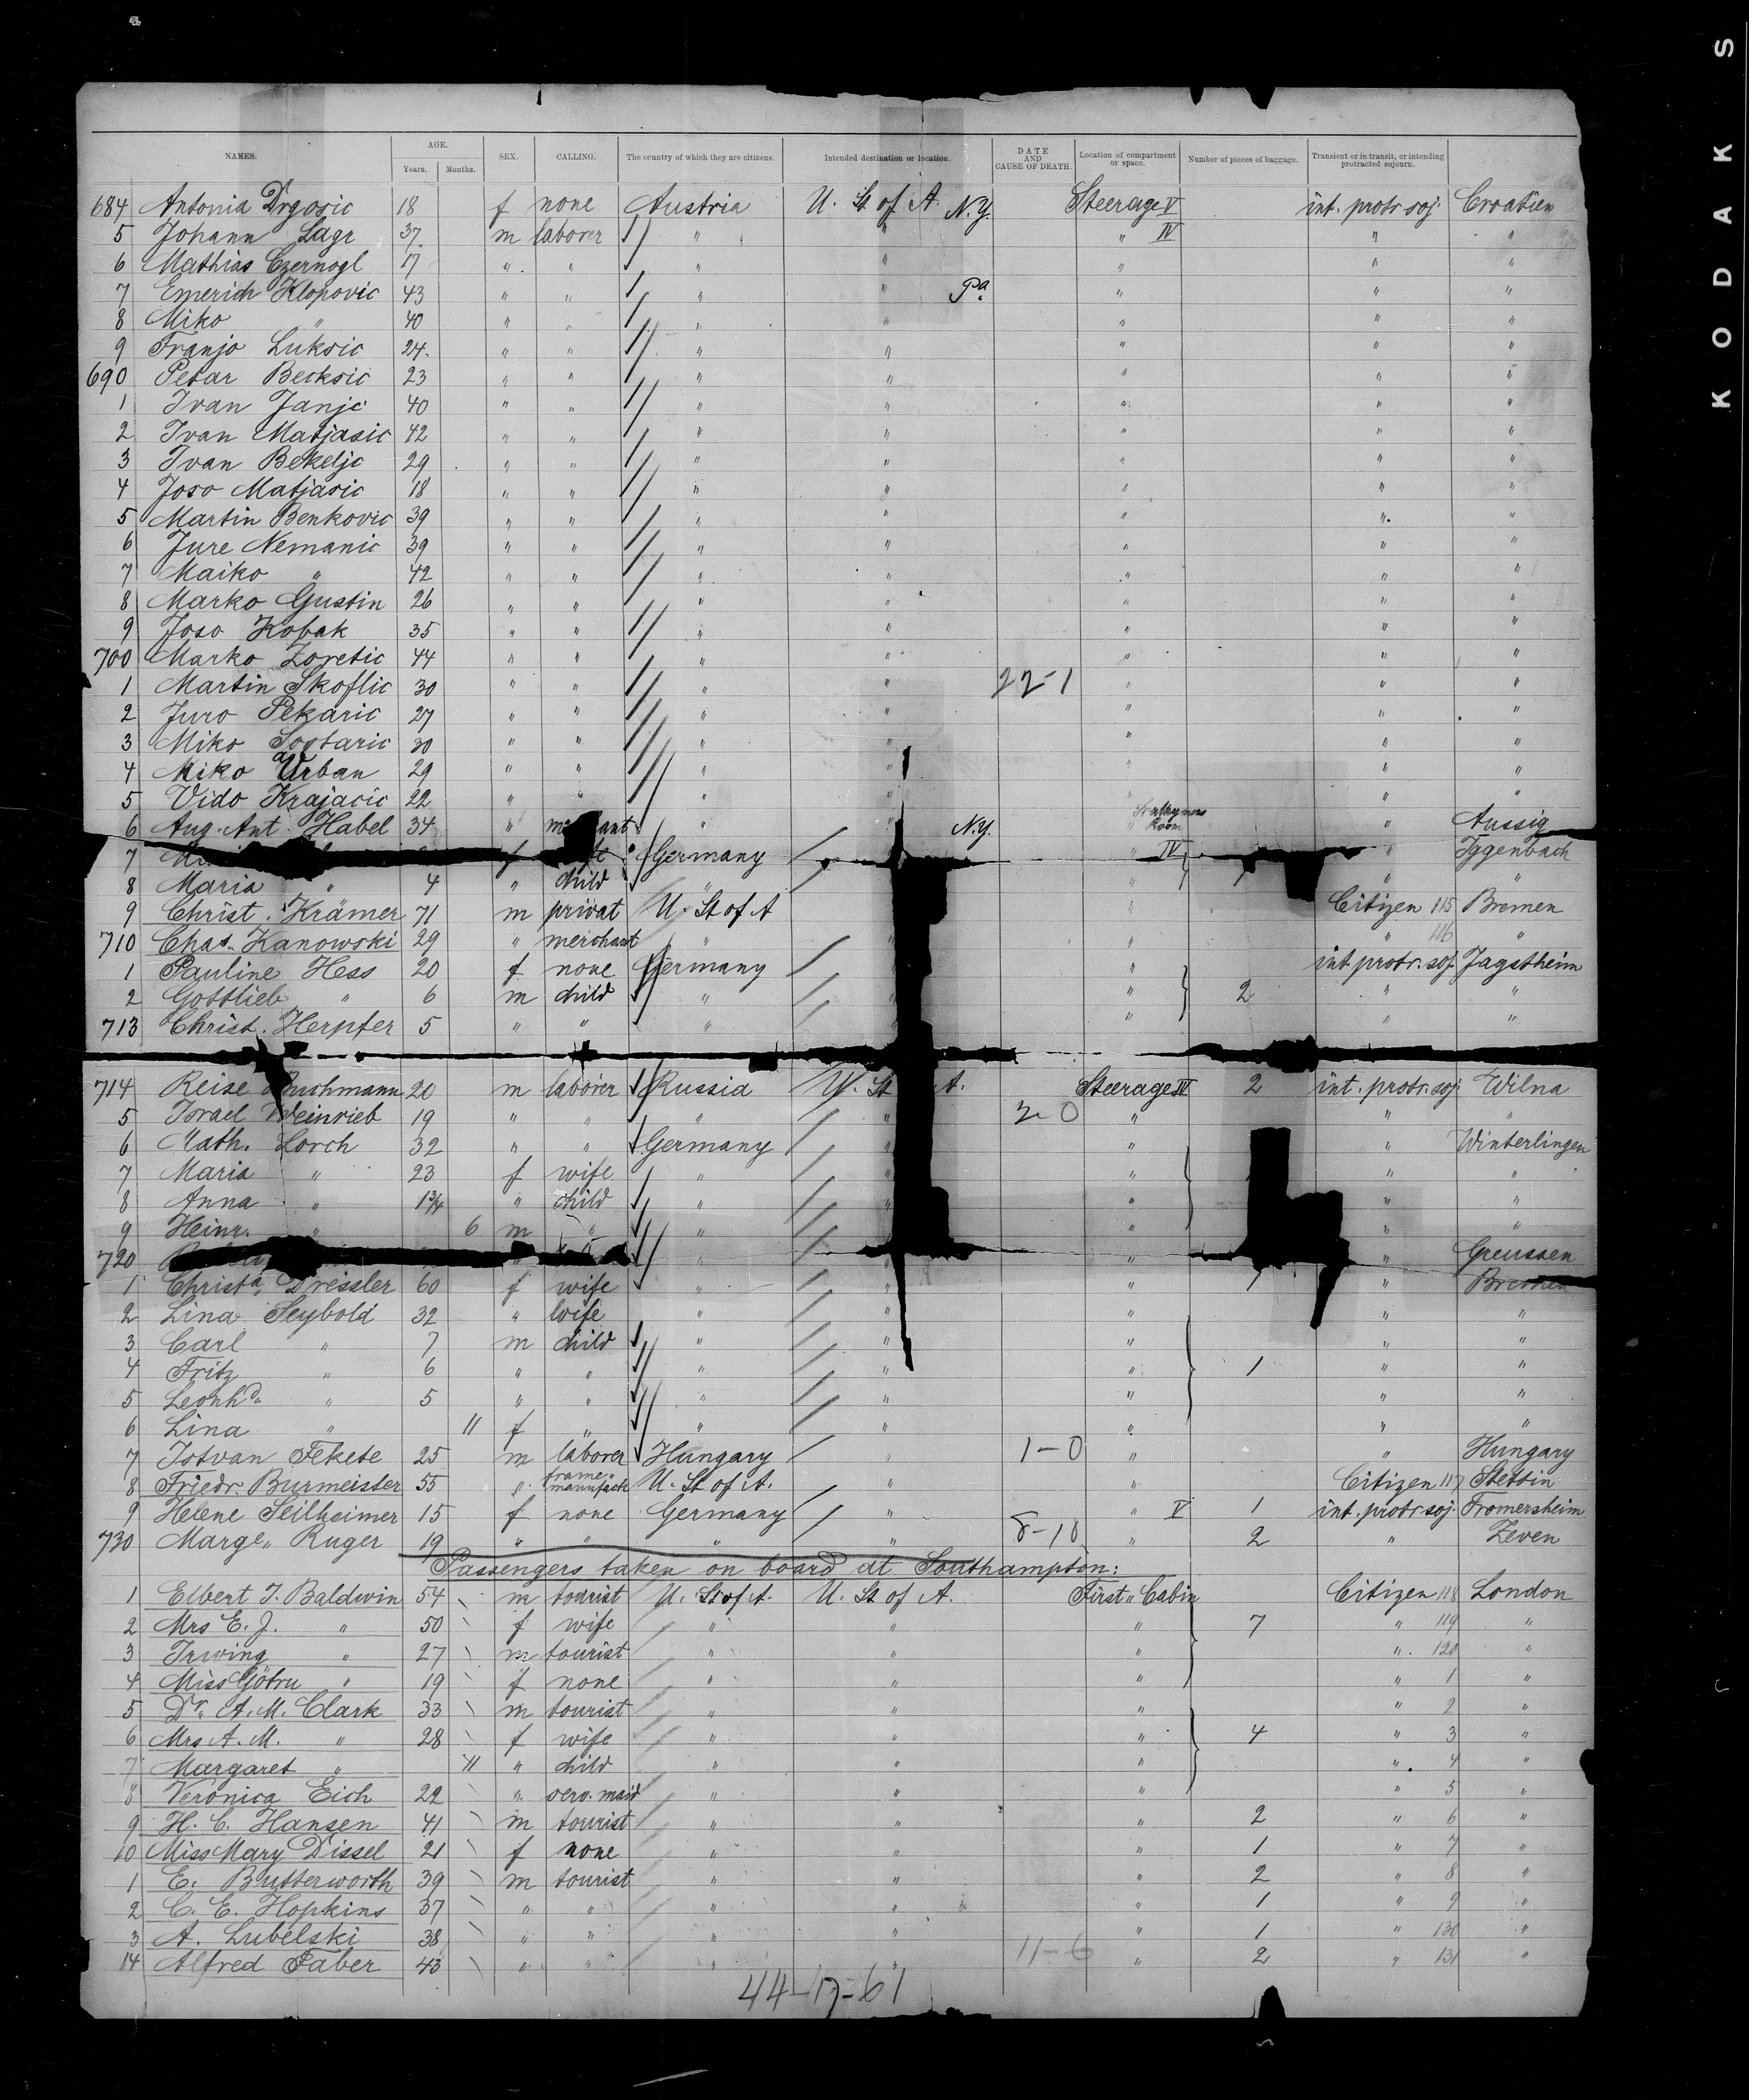 NAMES. AGE. Years. Months. SEX. CALLING. The country of which they are citizens. Intended destination or location. DATE AND CAUSE OF DEATH. Location of compartment or space. Number of pieces of baggage. Transient or in transit, or intending protracted sojourn.
684 Antonia Drgosic 18 f none Austria U. St of A. N.Y. Steerage V int. protr. soj. Croatien
5 Johann Lagr 37 m laborer " " " IV " "
6 Mathias Czernogl 17 " " " " " " "
7 Emerich Klopovic 43 " " " " Pa. " " "
8 Miko " 40 " " " " " " "
9 Franjo Luksic 24 " " " " " " "
690 Petar Becksic 23 " " " " " " "
1 Ivan Janjc 40 " " " " " " "
2 Ivan Matjasic 42 " " " " " " "
3 Ivan Bekeljc 29 " " " " " " "
4 Joso Matjasic 18 " " " " " " "
5 Martin Benkovic 39 " " " " " " "
6 Jure Nemanic 39 " " " " " " "
7 Maiko " 42 " " " " " " "
8 Marko Gustin 26 " " " " " " "
9 Joso Kobak 35 " " " " " " "
700 Marko Zoretic 44 " " " " " " "
1 Martin Skoflic 30 " " " " 22-1 " " "
2 Juro Pekaric 27 " " " " " " "
3 Miko Sostaric 30 " " " " " " "
4 Miko Urban 29 " " " " " " "
5 Vido Krajacic 22 " " " " " " "
6 Aug. Ant. Habel 34 " " N.Y. " Room " Aussig
7 f Germany " IV " Iggenbach
8 Maria " 4 " child " " " "
9 Christ. Krämer 71 m privat U. St of A " Citizen 115 Bremen
710 Chas. Kanowski 29 " merchant " " " 116 "
1 Pauline Hess 20 f none Germany " int. protr. soj. Jagstheim
2 Gottlieb " 6 m child " " 2 " "
713 Christ. Herpfer 5 " " " " " "
714 Reise 20 m laborer Russia U. St A. Steerage IV 2 int. protr. soj. Wilna
5 Israel Weinrieb 19 " " " 2-0 " " "
6 Math. Lorch 32 " " Germany " " " Winterlingen
7 Maria " 23 f wife " " " "
8 Anna " 1¾ " child " " " " "
9 Heinr. " 6 m " " " " "
720 " " " Greussen
1 Christ.a Dressler 60 f wife " " " 1 " Bremen
2 Lina Seybold 32 " wife " " " " "
3 Carl " 7 m child " " " " "
4 Fritz " 6 " " " " " 1 " "
5 Leonhd. " 5 " " " " " " "
6 Lina " 11 f " " " " " "
7 Istvan Fekete 25 m laborer Hungary " 1-0 " " Hungary
8 Friedr. Burmeister 55 " frame manufact U. St of A. " " Citizen 117 Stettin
9 Helene Seilheimer 15 f none Germany " " V 1 int. protr. soj. Fromersheim
730 Marge. Ruger 19 " " " " 8-10 " 2 " Zeven
Passengers taken on board at Southampton:
1 Elbert J. Baldwin 54 m tourist U. St of A. U. St of A. First Cabin Citizen 118 London
2 Mrs E. J. " 50 f wife " " " 7 " 119 "
3 Irwing " 27 m tourist " " " " 120 "
4 Miss " 19 f none " " " " 1 "
5 Dr. A. M. Clark 33 m tourist " " " " 2 "
6 Mrs A. M. " 28 f wife " " " 4 " 3 "
7 Margaret " 11 " child " " " " 4 "
8 Veronica Eich 22 " serv. maid " " " " 5 "
9 H. C. Hansen 41 m tourist " " " 2 " 6 "
10 Miss Mary Dissel 21 f none " " " 1 " 7 "
1 E. Butterworth 39 m tourist " " " 2 " 8 "
2 C. E. Hopkins 37 " " " " " 1 " 9 "
3 A. Lubelski 38 " " " " " 1 " 130 "
14 Alfred Faber 43 " " " " 11-6 " 2 " 131 "
44-17-61
KODAK S